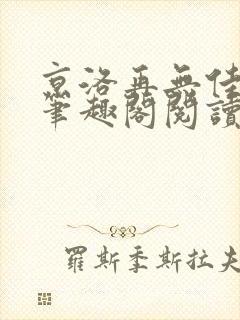 京洛再無佳
筆趣閣閱讀
羅斯季斯拉夫